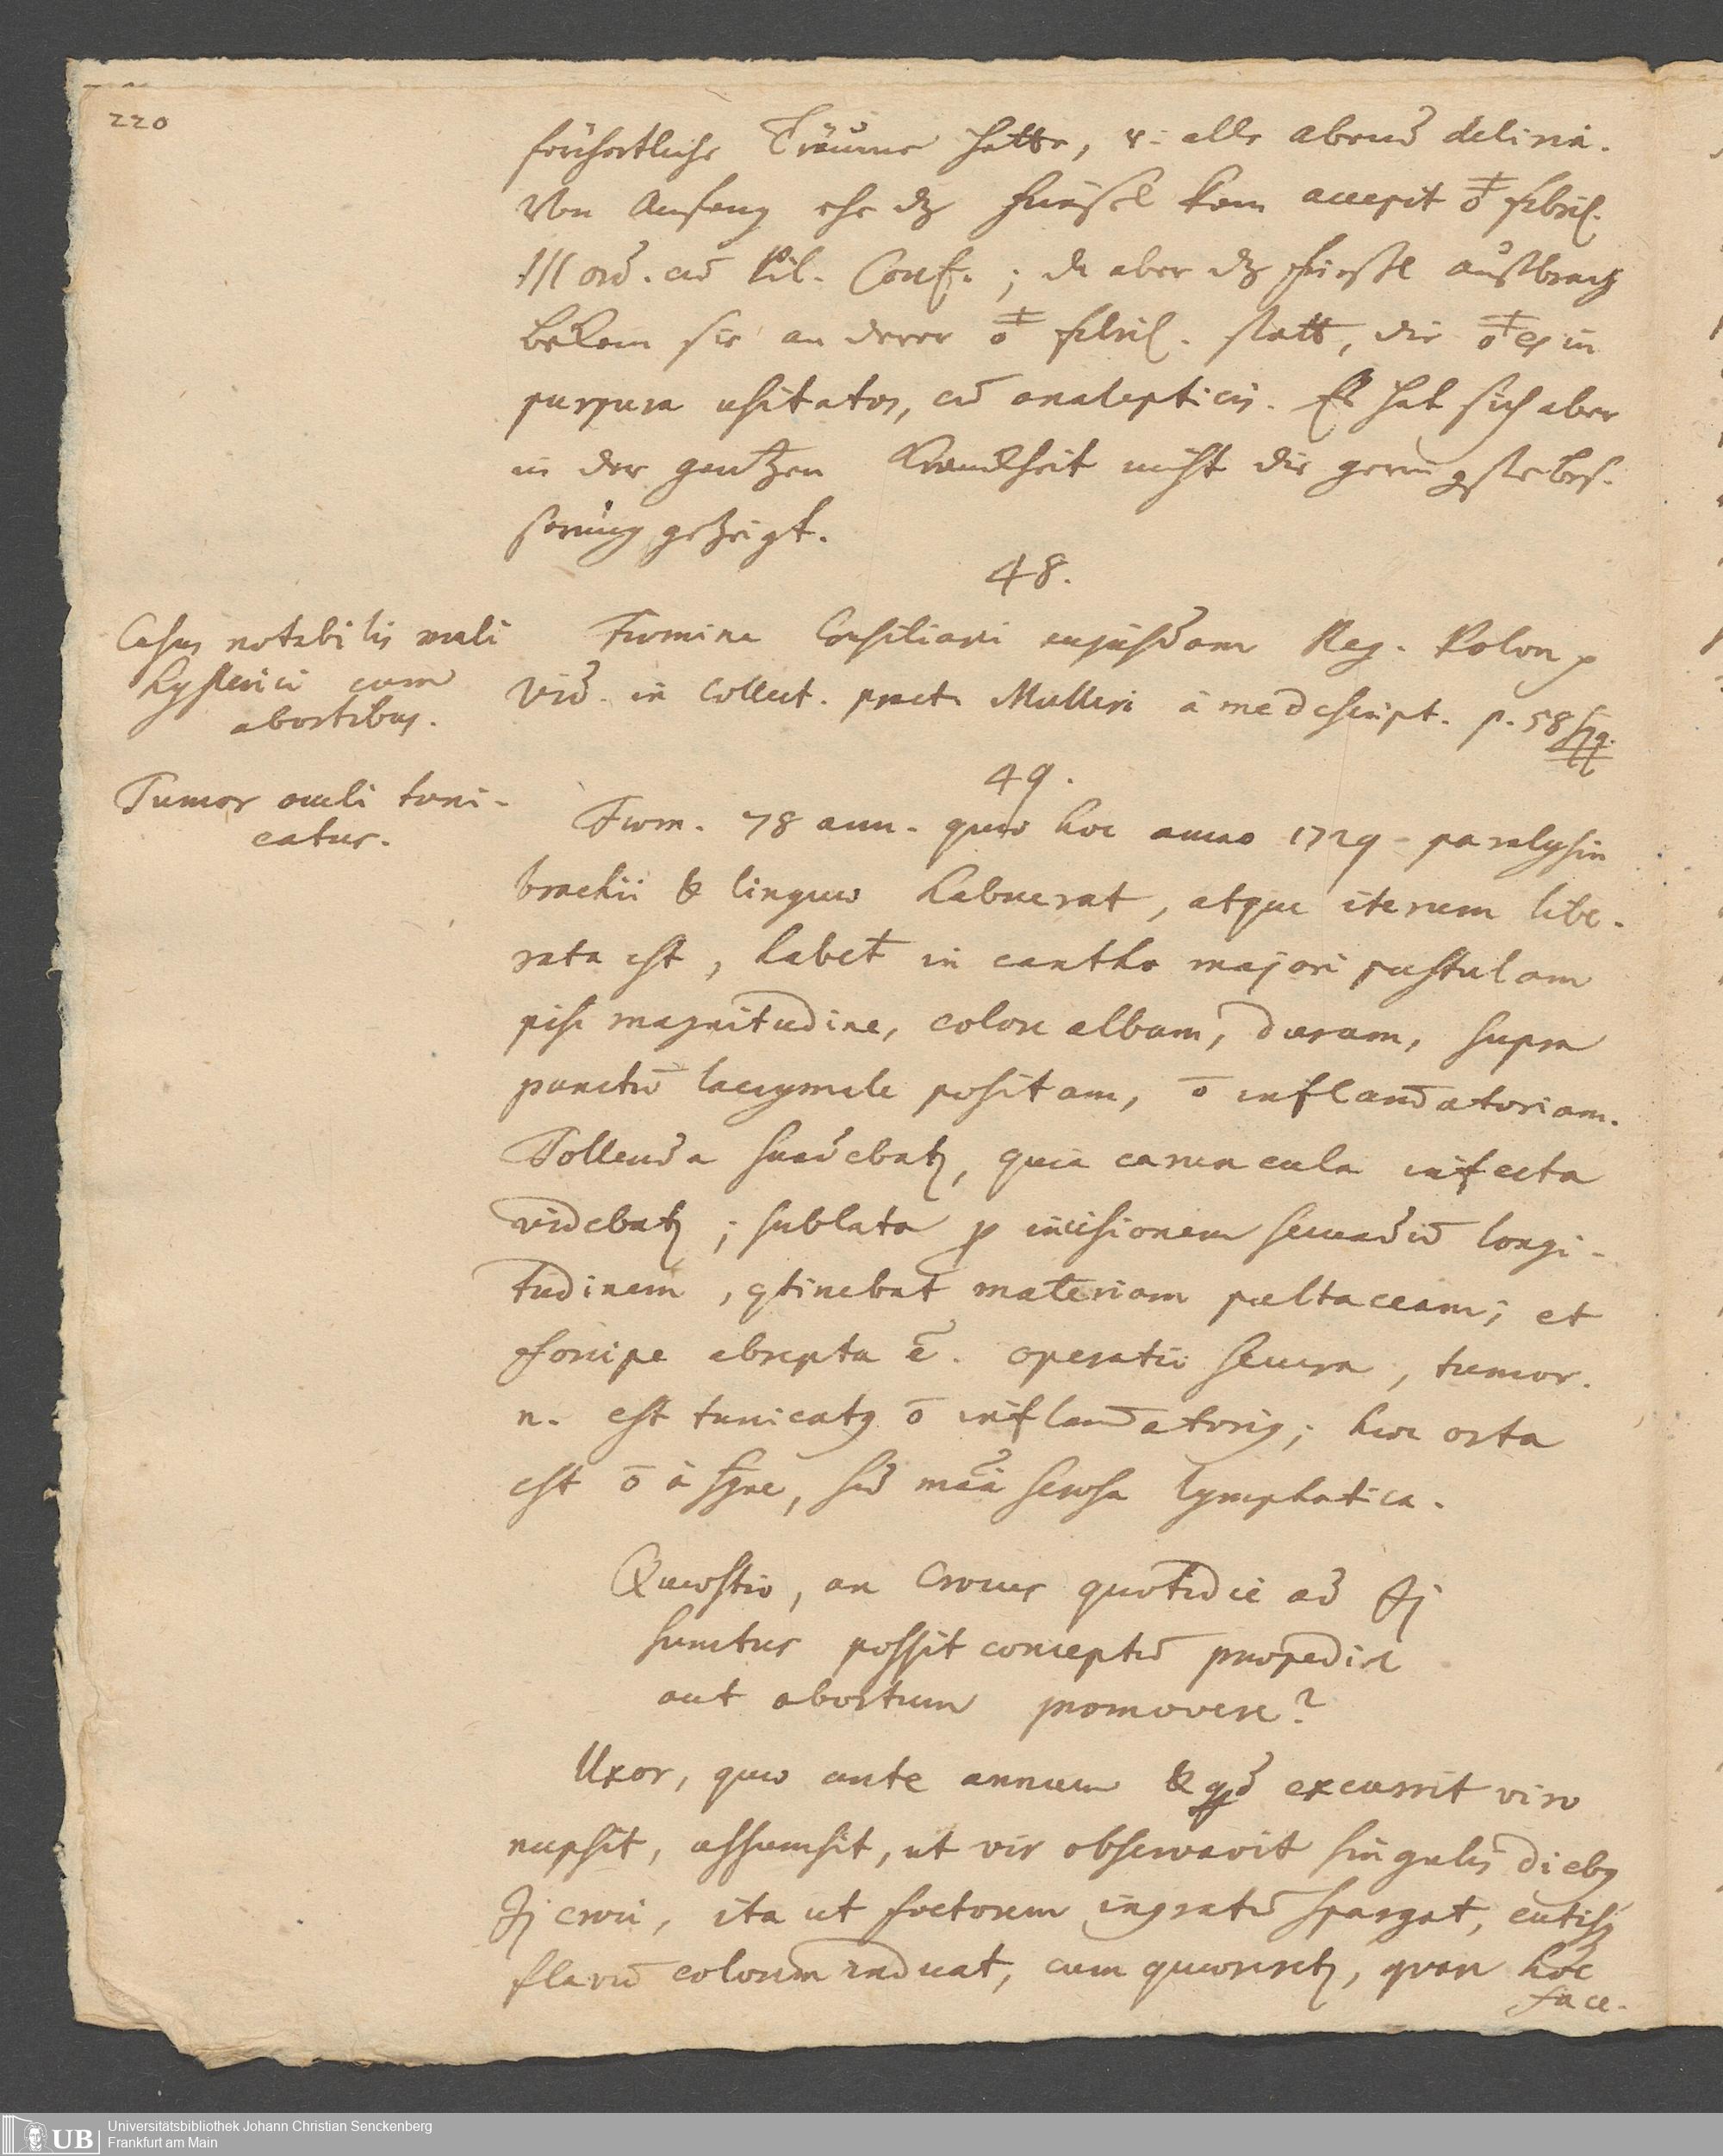 220
förchterliche Träume hatte, u. alle abend deliria.
Von Anfang ehe dz frießel kam accepit febril.
ord. cū Pil. Conf. ; da aber dz frießel außbrach
bekam sie an derer febril. statt, die in
purpura usitatos, cū analepticis. Es hat sich aber
in der gantzen Kranckheit nicht die geringste bes-
serung gezeigt.
48.
Casus notabilis mali
hysterici cum
abortibus.
Fœmina Consiliarii cujusdam Reg. Polon
vid. in Collect. pract. Mulleri à me descript. p. 58 sqq.
49.
Tumor oculi tuni-
catus.
Fœm. 78 ann. quæ hoc anno 1729 paralysin
brachii & linguæ habuerat, atque iterum libe-
rata est, habet in cantho majori pustulam
pisi magnitudine, colore albam, duram, supra
punctū lacrymale positam, ō inflam̄atoriam.
Tollenda suadebatz, quia caruncula infecta
videbatz ; sublata p incisionem secundū longi-
tudinem, 9tinebat materiam pultaceam; et
forcipe abrepta ē. operatio secura, tumor.
n. est tunicatz ō inflam̄atoriz; hæc orta
est ō à sgne, sed māa serosa lymphatica.
Quæstio, an Crocus quotidie ad ʒj
sumtus possit conceptū præpedire
aut abortum promovere?
Uxor, quæ ante annum & qd excurrit viro
nupsit, assumsit, ut vir observavit singulis diebz
ʒj croci, ita ut foetorem ingratū spargat, cutisqz
flavū colorem induat, cum quæreretz, quare hoc
face-
Universitätsbibliothek Johann Christian Senckenberg
Frankfurt am Main
UB